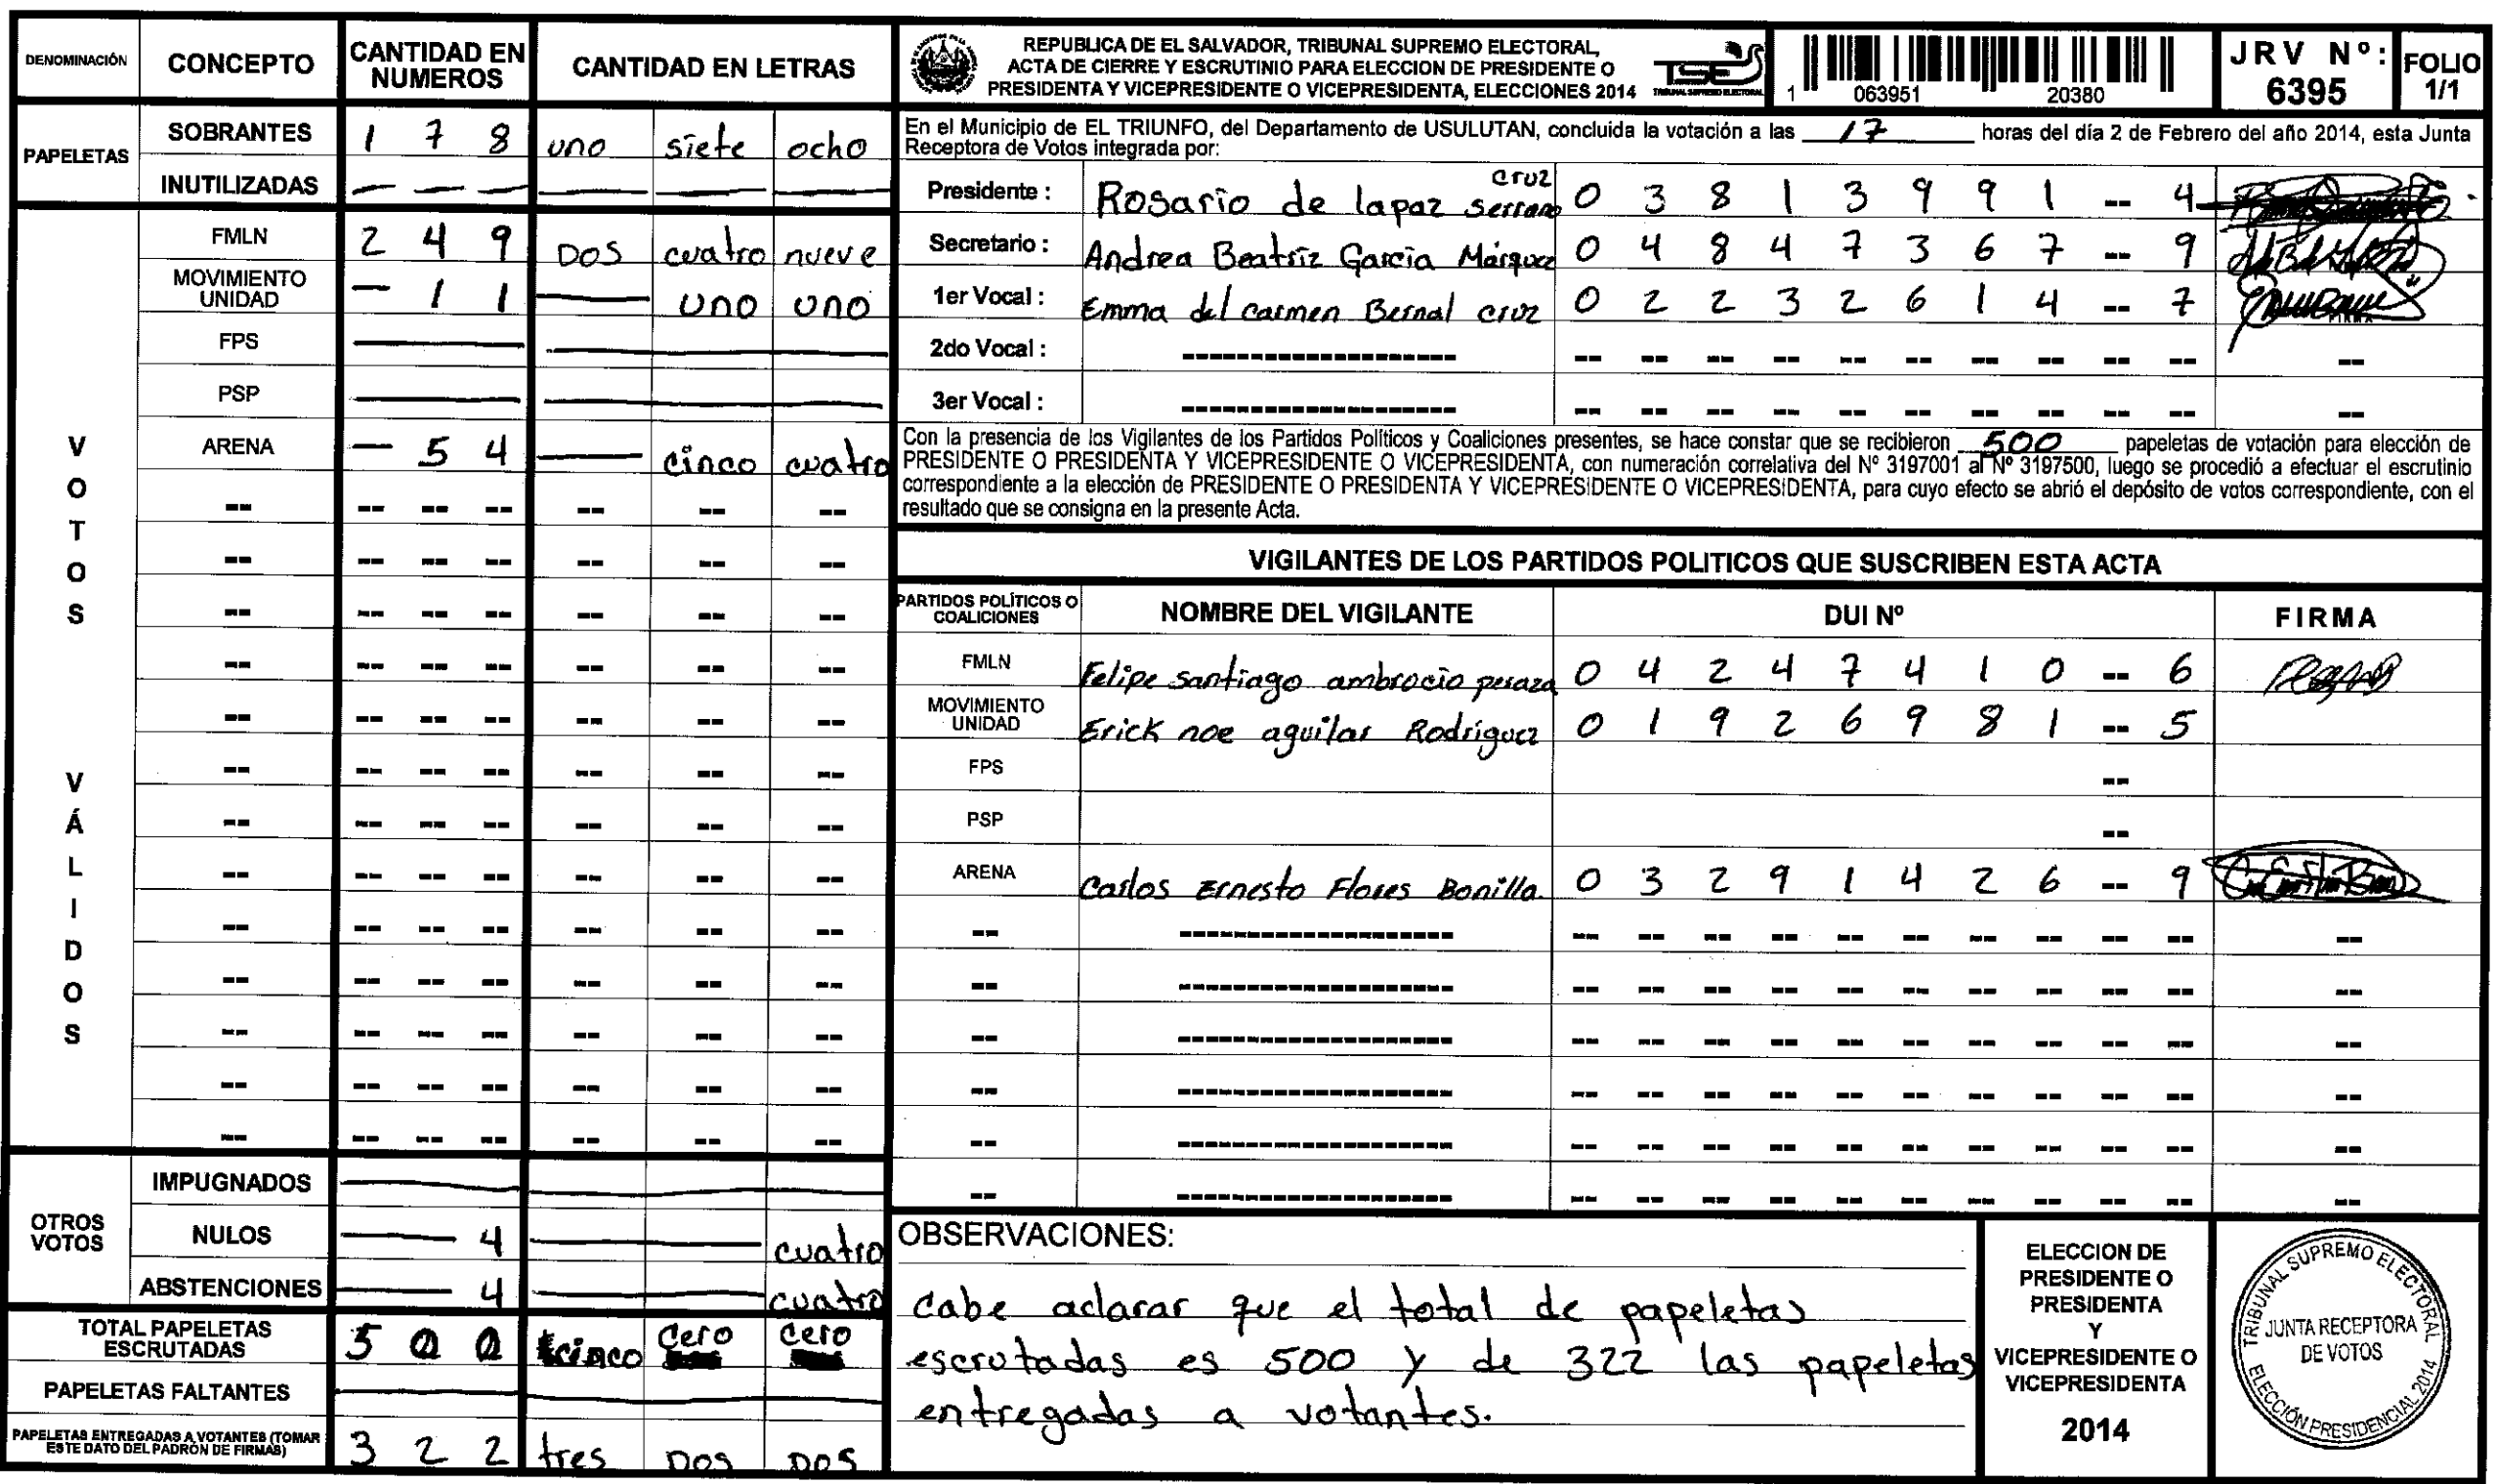 DENOMINACIÓN CONCEPTO CANTIDAD EN NUMEROS CANTIDAD EN LETRAS
PAPELETAS
SOBRANTES 1 7 8 uno siete ocho
INUTILIZADAS — — — — — —
VOTOS VÁLIDOS
FMLN 2 4 9 DOS cuatro nueve
MOVIMIENTO UNIDAD — 1 1 — uno uno
FPS
PSP
ARENA — 5 4 — cinco cuatro
OTROS VOTOS
IMPUGNADOS
NULOS — 4 — cuatro
ABSTENCIONES — 4 — cuatro
TOTAL PAPELETAS ESCRUTADAS 5 0 0 cinco cero cero
PAPELETAS FALTANTES
PAPELETAS ENTREGADAS A VOTANTES (TOMAR ESTE DATO DEL PADRÓN DE FIRMAS) 3 2 2 tres DOS DOS
REPUBLICA DE EL SALVADOR, TRIBUNAL SUPREMO ELECTORAL,
ACTA DE CIERRE Y ESCRUTINIO PARA ELECCION DE PRESIDENTE O
PRESIDENTA Y VICEPRESIDENTE O VICEPRESIDENTA, ELECCIONES 2014
TSE
TRIBUNAL SUPREMO ELECTORAL
1 063951 20380
JRV Nº: 6395
FOLIO 1/1
En el Municipio de EL TRIUNFO, del Departamento de USULUTAN, concluida la votación a las 17 horas del día 2 de Febrero del año 2014, esta Junta
Receptora de Votos integrada por:
Presidente : Rosario de lapaz cruz serrano 0 3 8 1 3 9 9 1 -- 4
Secretario : Andrea Beatriz García Márquez 0 4 8 4 7 3 6 7 -- 9
1er Vocal : Emma del carmen Bernal cruz 0 2 2 3 2 6 1 4 -- 7
2do Vocal :
3er Vocal :
Con la presencia de los Vigilantes de los Partidos Políticos y Coaliciones presentes, se hace constar que se recibieron 500 papeletas de votación para elección de
PRESIDENTE O PRESIDENTA Y VICEPRESIDENTE O VICEPRESIDENTA, con numeración correlativa del Nº 3197001 al Nº 3197500, luego se procedió a efectuar el escrutinio
correspondiente a la elección de PRESIDENTE O PRESIDENTA Y VICEPRESIDENTE O VICEPRESIDENTA, para cuyo efecto se abrió el depósito de votos correspondiente, con el
resultado que se consigna en la presente Acta.
VIGILANTES DE LOS PARTIDOS POLITICOS QUE SUSCRIBEN ESTA ACTA
PARTIDOS POLÍTICOS O COALICIONES NOMBRE DEL VIGILANTE DUI Nº FIRMA
FMLN Felipe santiago ambrocio peraza 0 4 2 4 7 4 1 0 -- 6
MOVIMIENTO UNIDAD Erick noe aguilar Rodríguez 0 1 9 2 6 9 8 1 -- 5
FPS --
PSP --
ARENA Carlos Ernesto Flores Bonilla. 0 3 2 9 1 4 2 6 -- 9
OBSERVACIONES:
Cabe aclarar que el total de papeletas
escrutadas es 500 y de 322 las papeletas
entregadas a votantes.
ELECCION DE
PRESIDENTE O
PRESIDENTA
Y
VICEPRESIDENTE O
VICEPRESIDENTA
2014
TRIBUNAL SUPREMO ELECTORAL
JUNTA RECEPTORA
DE VOTOS
ELECCIÓN PRESIDENCIAL 2014